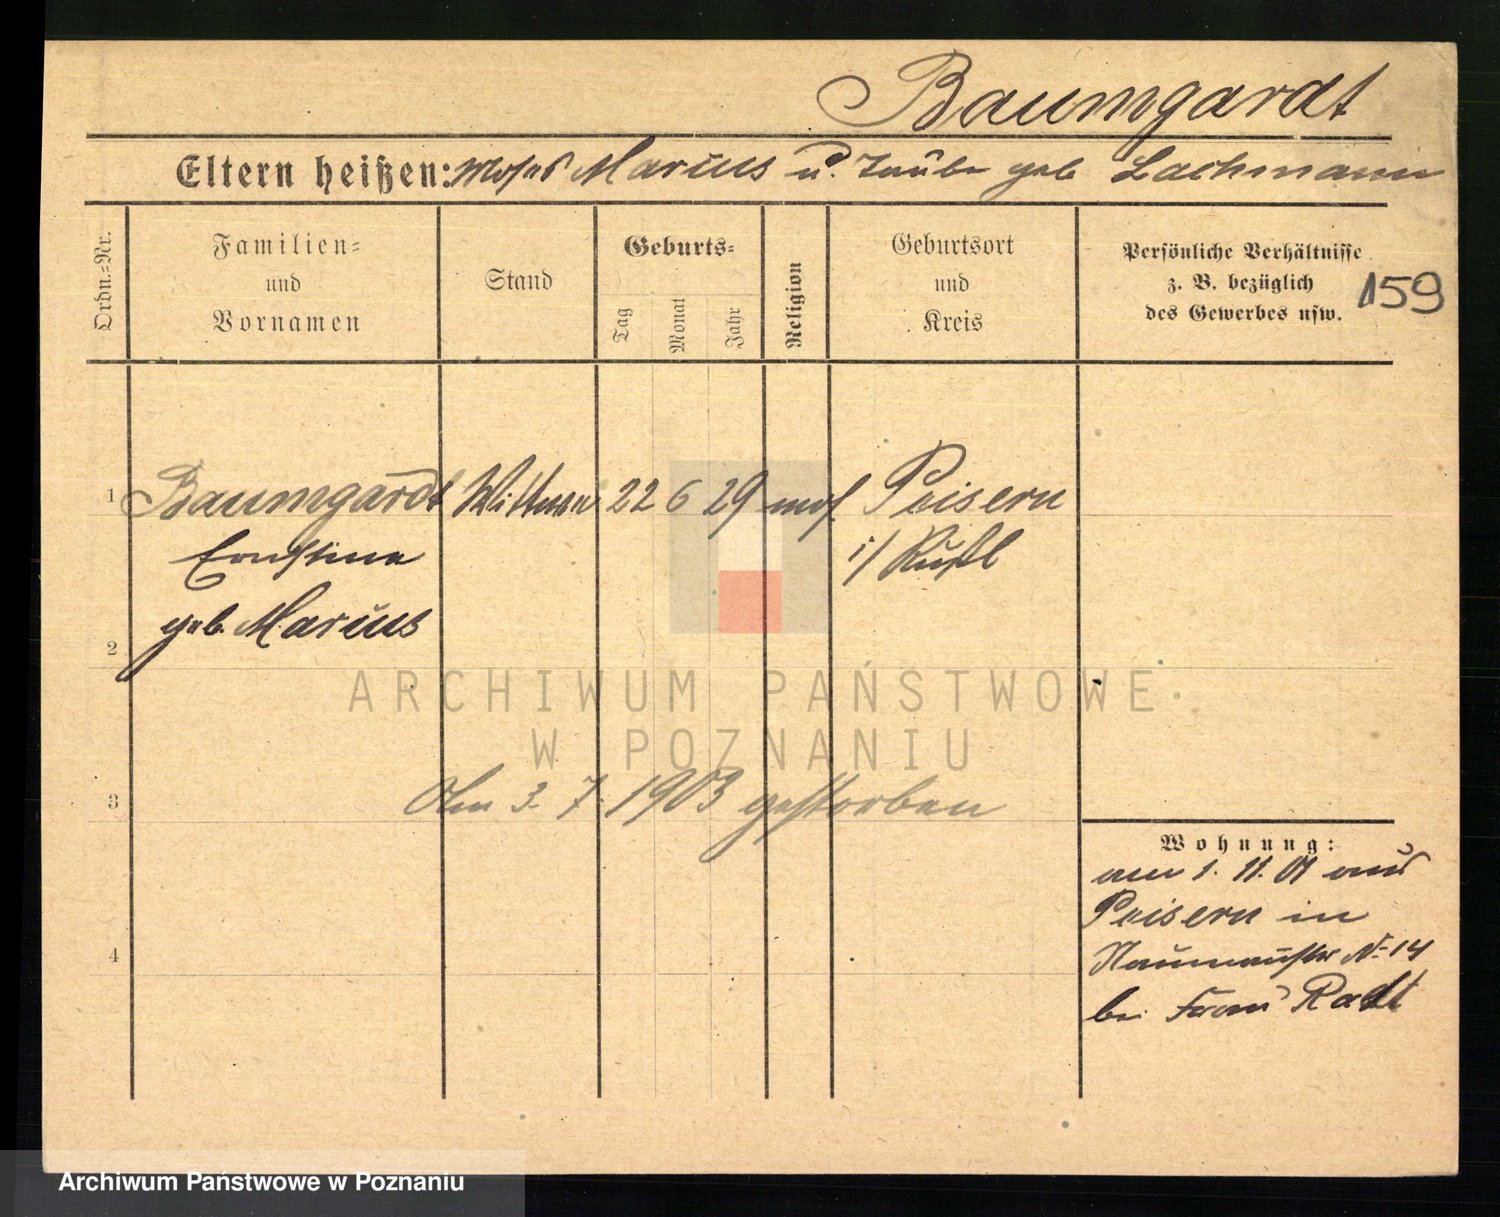 Baumgardt
Eltern heißen: Moses Marius u. Taube geb Lachmann
Ordn.-Nr.
Familien-
und
Vornamen
Stand
Geburts-
Tag
Monat
Jahr
Religion
Geburtsort
und
Kreis
Persönliche Verhältnisse
z. B. bezüglich
des Gewerbes usw.
159
1 Baumgardt Wittwe 22 6 29 mos. Peisern
Ernstine i/ Rußl
geb. Marius
2
ARCHIWUM PAŃSTWOWE
W POZNANIU
3
Am 3. 7. 1903 gestorben
Wohnung:
am 1. 11. 01 aus
Peisern in
Naumannstr No 14
bei Frau Radt
4
Archiwum Państwowe w Poznaniu